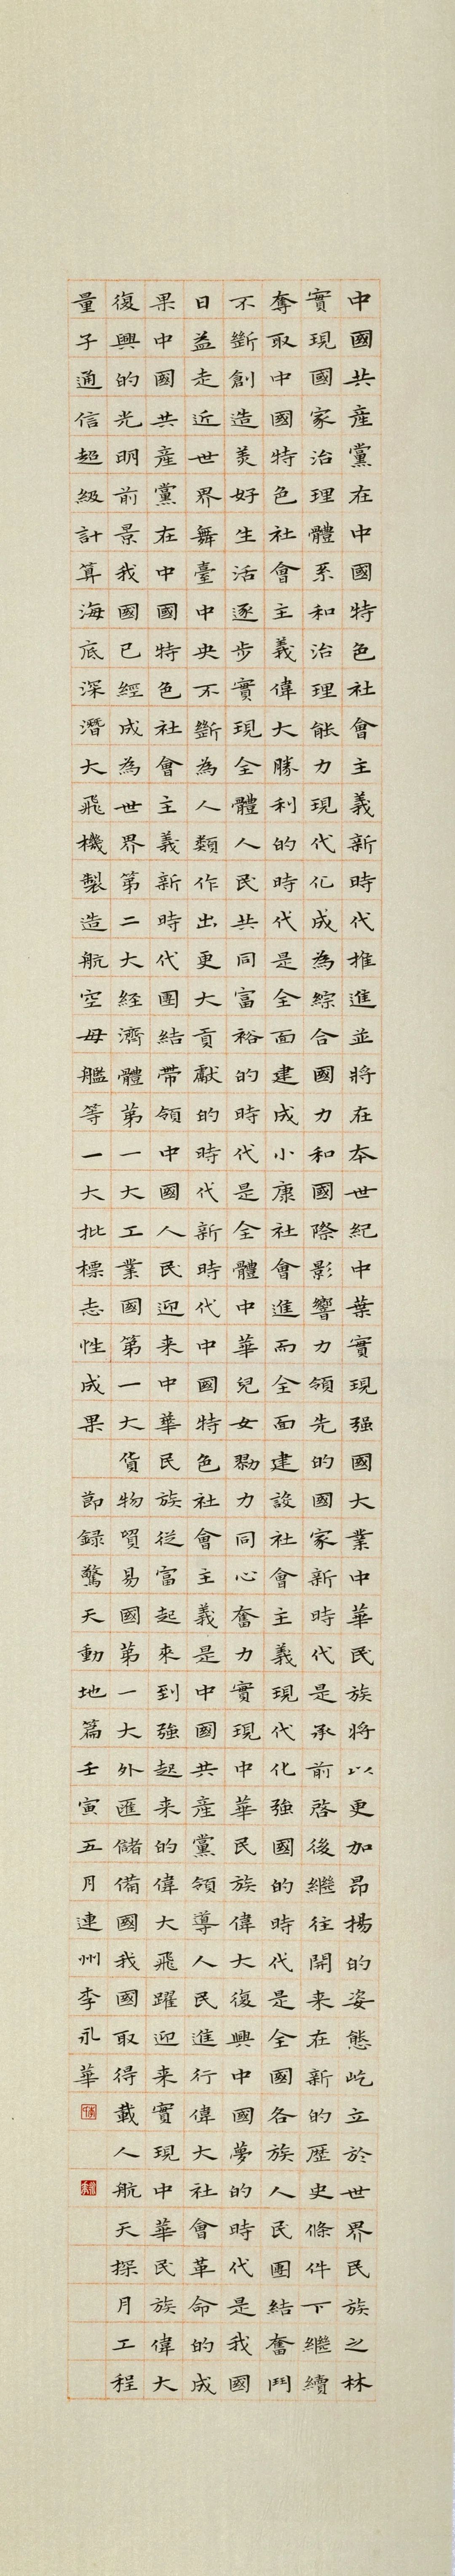 中國共産黨在中國特色社會主義新時代推進並將在本世紀中葉實現强國大業中華民族將以更加昂揚的姿態屹立於世界民族之林
實現國家治理體系和治理能力現代化成為綜合國力和國際影響力領先的國家新時代是承前啓後繼往開来在新的歷史條件下繼續
奪取中國特色社會主義偉大勝利的時代是全面建成小康社會進而全面建設社會主義現代化強國的時代是全國各族人民團結奮鬥
不斷創造美好生活逐步實現全體人民共同富裕的時代是全體中華兒女勠力同心奮力實現中華民族偉大復興中國夢的時代是我國
日益走近世界舞臺中央不斷為人類作出更大貢獻的時代新時代中國特色社會主義是中國共産黨領導人民進行偉大社會革命的成
果中國共産黨在中國特色社會主義新時代團結帶領中國人民迎来中華民族從富起來到強起来的偉大飛躍迎来實現中華民族偉大
復興的光明前景我國已經成為世界第二大經濟體第一大工業國第一大貨物貿易國第一大外匯儲備國我國取得載人航天探月工程
量子通信超級計算海底深潛大飛機製造航空母艦等一大批標志性成果 節録驚天動地篇壬寅五月連州李永華